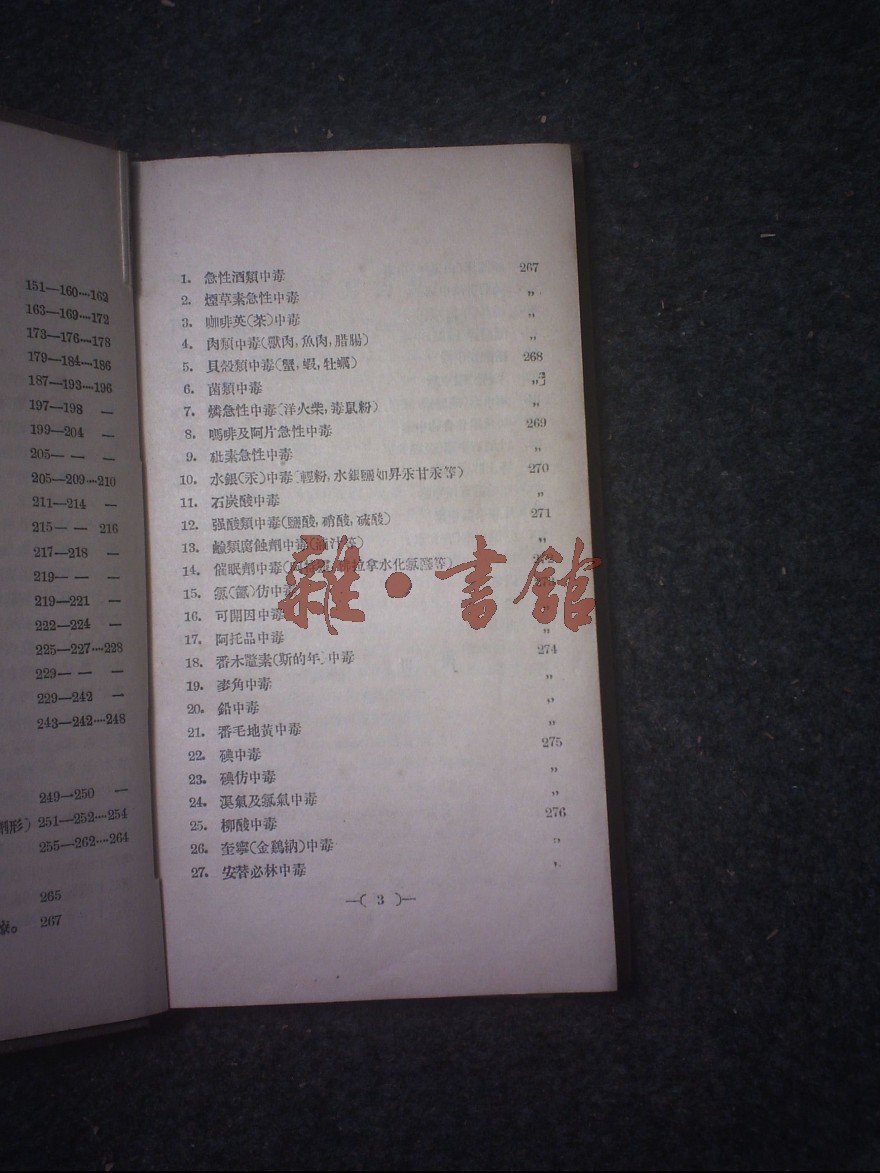 151—160····162
163—169····172
173—176····178
179—184····186
187—193····196
197—198 —
199—204 —
205— — —
205—209····210
211—214 —
215— — 216
217—218 —
219— — —
219—221 —
222—224 —
225—227····228
229— — —
229—242 —
243—242····248
249—250 —
形) 251—252····254
255—262····264
265
。 267
1. 急性酒類中毒 267
2. 煙草素急性中毒 〃
3. 咖啡英(茶)中毒 〃
4. 肉類中毒(獸肉,魚肉,腊腸) 〃
5. 貝殼類中毒(蟹,蝦,牡蠣) 268
6. 菌類中毒 〃
7. 燐急性中毒〔洋火柴,毒鼠粉) 〃
8. 嗎啡及阿片急性中毒 269
9. 砒素急性中毒 〃
10. 水銀(汞)中毒〔輕粉,水銀鹽如昇汞甘汞等) 270
11. 石炭酸中毒 〃
12. 强酸類中毒(鹽酸,硝酸,硫酸) 271
13. 鹼類腐蝕劑中毒 〃
14. 催眠劑中毒 拿水化氯 等)
15. 氯(氰)仿中毒
16. 可開因中毒
17. 阿托品中毒 〃
18. 番木鼈素(斯的年〕中毒 274
19. 麥角中毒 〃
20. 鉛中毒 〃
21. 番毛地黃中毒 〃
22. 碘中毒 275
23. 碘仿中毒 〃
24. 溴氣及氯氣中毒 〃
25. 柳酸中毒 276
26. 奎寧(金鷄納)中毒 〃
27. 安替必林中毒 〃
—( 3 )—
雜·書舘